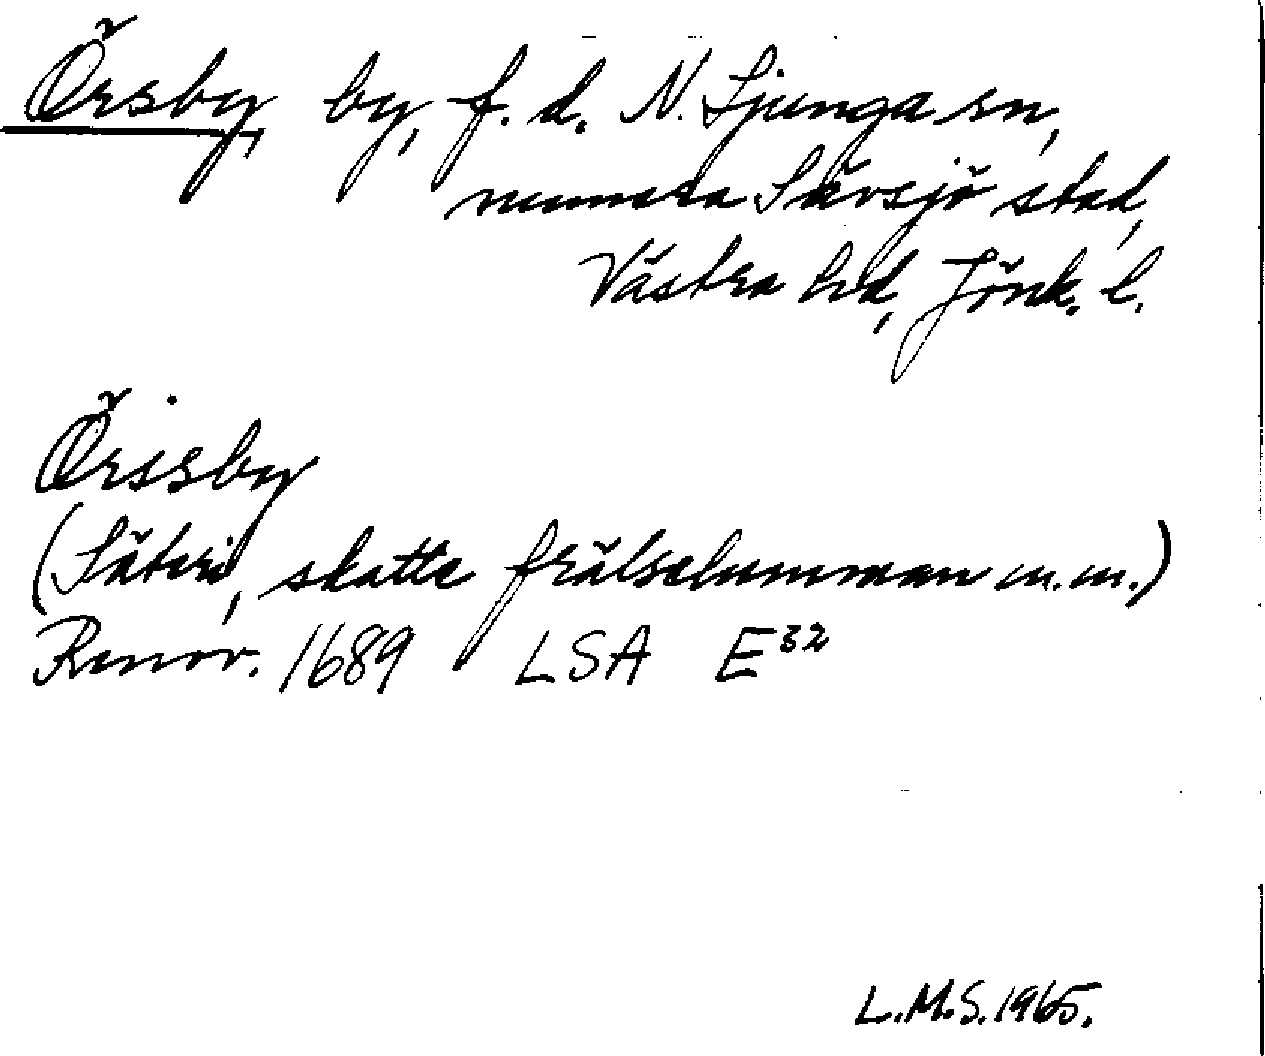 Örsby, by, f. d. N. Ljunga sn,
numera Sävsjö stad,
Västra hd, Jönk. l.
Örisby
(Säteri, skatte frälsehemman m.m.)
Renov. 1689 LSA E32
L.M.S. 1965.